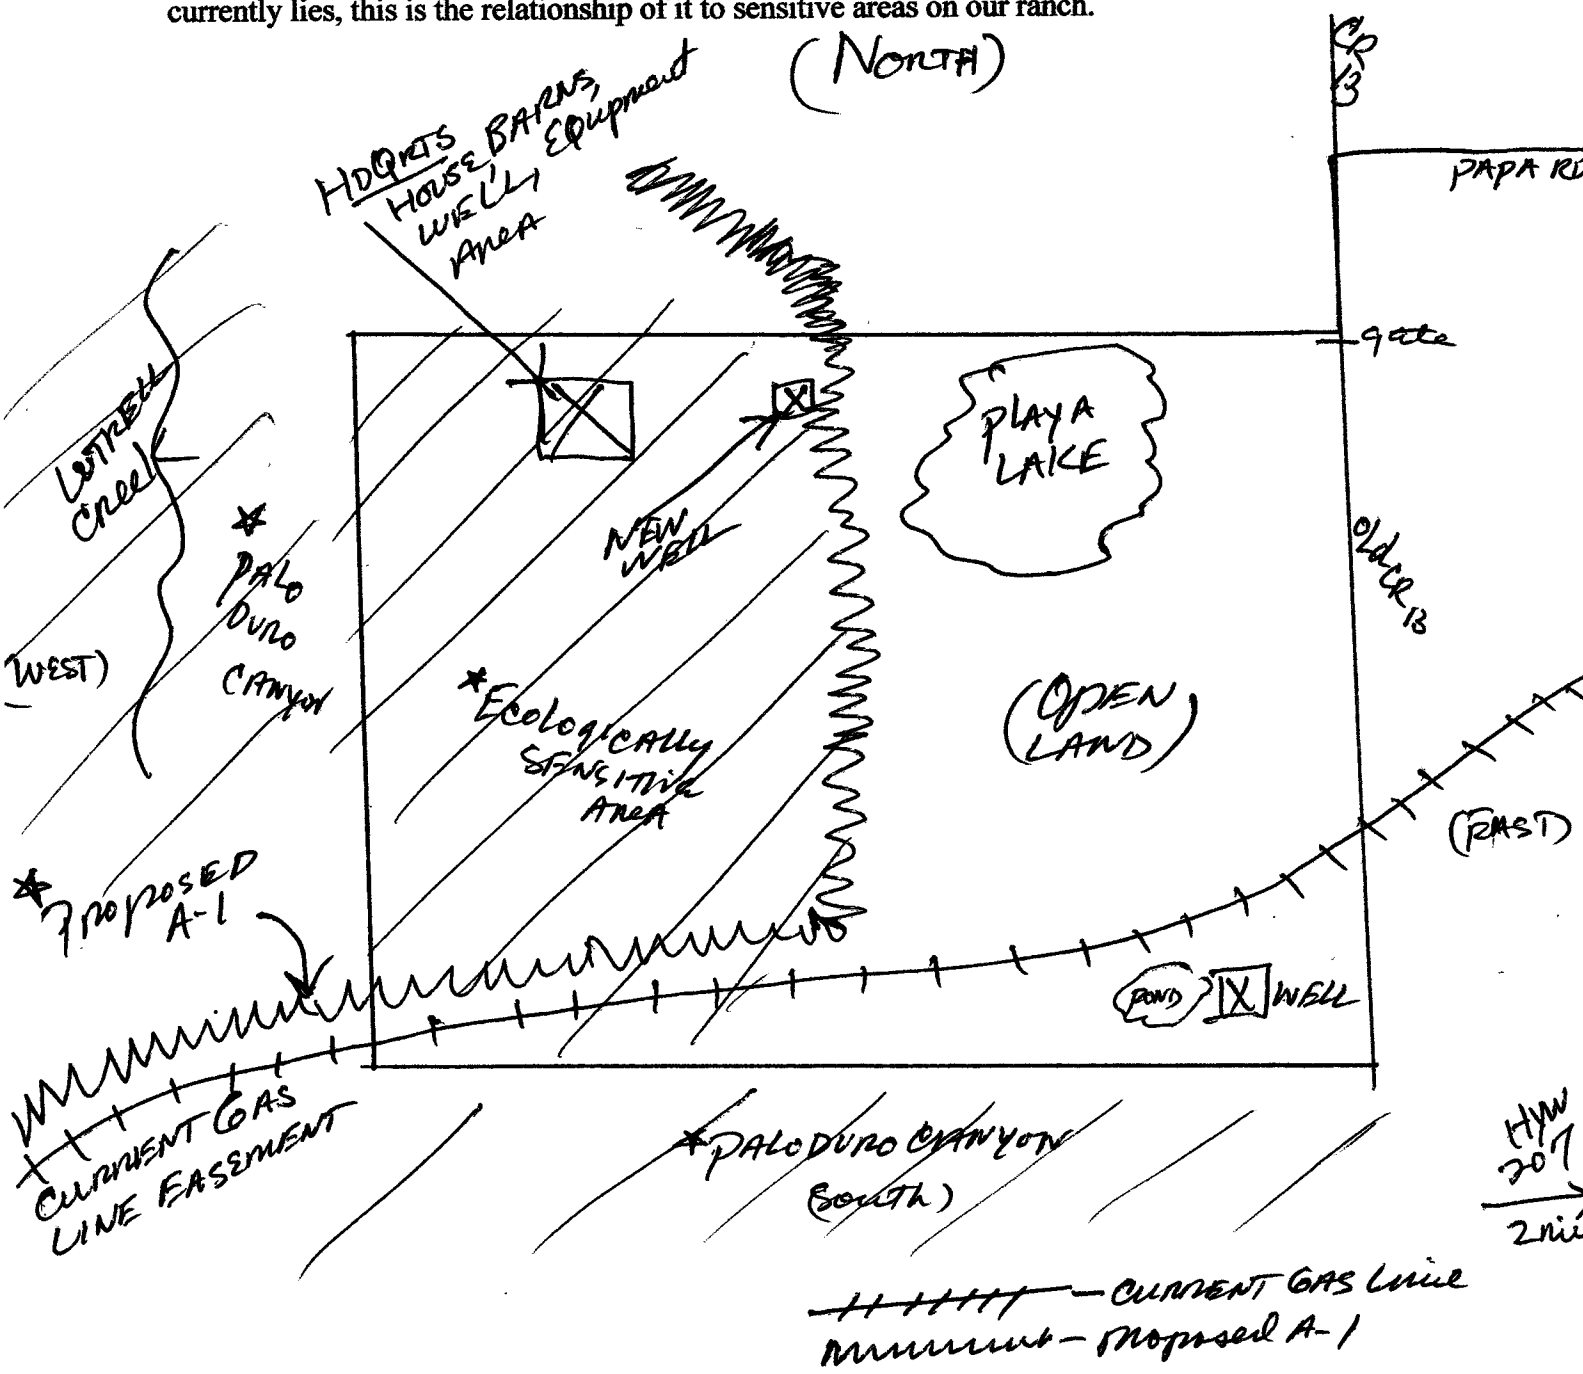 currently lies, this is the relationship of it to sensitive areas on our ranch.
(NORTH)
CR
13
PAPA RD
HDQRTS
HOUSE, BARNS,
WELL, EQUPMENT
AREA
gate
PLAYA
LAKE
LUTTRELL
CREEK
NEW
WELL
Old CR 13
PALO
DURO
CANYON
WEST)
*ECOLOGICALLY
SENSITIVE
AREA
(OPEN
LAND)
(EAST)
PROPOSED
A-1
POND
WELL
CURRENT GAS
LINE EASEMENT
PALO DURO CANYON
(South)
Hyw
207
— CURRENT GAS Line
— Proposed A-1